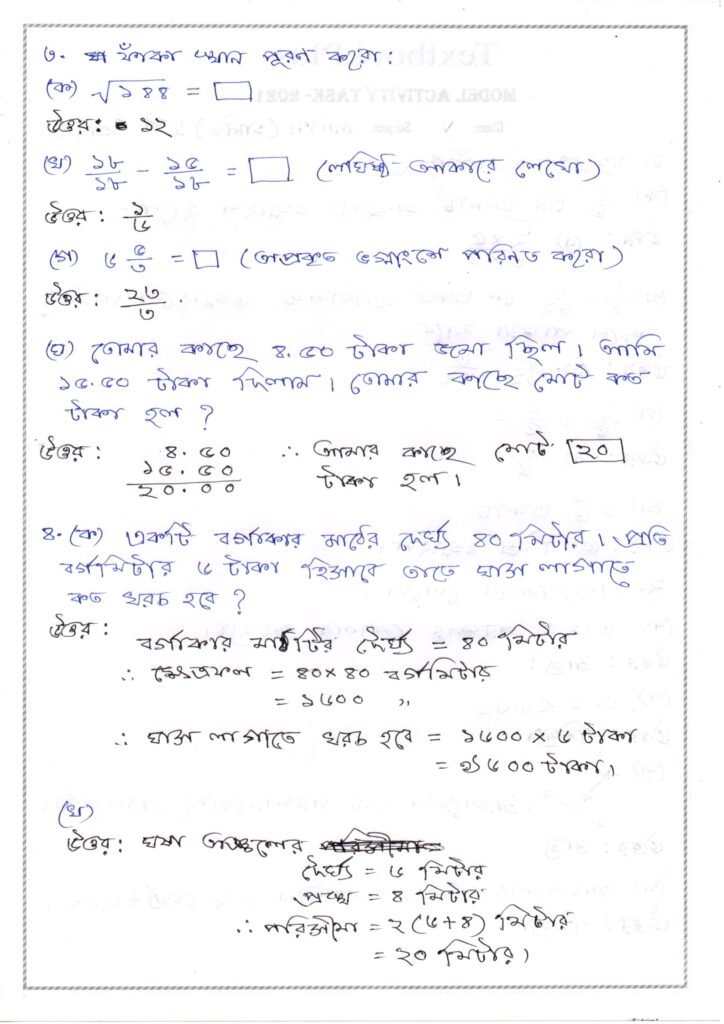 ৩. ফাঁকা স্থান পূরণ করো:
(ক) √১৪৪ = □
উত্তর: ১২
(খ) ১৮/১৮ - ১৫/১৮ = □ (লঘিষ্ঠ আকারে লেখো)
উত্তর: ১/৬
(গ) ৬ ৫/৩ = □ (অপ্রকৃত ভগ্নাংশে পরিনত করো)
উত্তর: ২৩/৩
(ঘ) তোমার কাছে ৪.৫০ টাকা জমা ছিল। আমি
১৫.৫০ টাকা দিলাম। তোমার কাছে মোট কত
টাকা হল ?
উত্তর: ৪.৫০ ∴ আমার কাছে মোট ২০
১৫.৫০ টাকা হল।
২০.০০
৪. (ক) একটি বর্গাকার মাঠের দৈর্ঘ্য ৪০ মিটার। প্রতি
বর্গমিটার ৬ টাকা হিসাবে তাতে ঘাস লাগাতে
কত খরচ হবে ?
উত্তর:
বর্গাকার মাঠটির দৈর্ঘ্য = ৪০ মিটার
∴ ক্ষেত্রফল = ৪০×৪০ বর্গমিটার
= ১৬০০ ,,
∴ ঘাস লাগাতে খরচ হবে = ১৬০০×৬ টাকা
= ৯৬০০ টাকা।
(খ)
উত্তর: ঘষা অঞ্চলের
দৈর্ঘ্য = ৬ মিটার
প্রস্থ = ৪ মিটার
∴ পরিসীমা = ২ (৬+৪) মিটার
= ২০ মিটার।